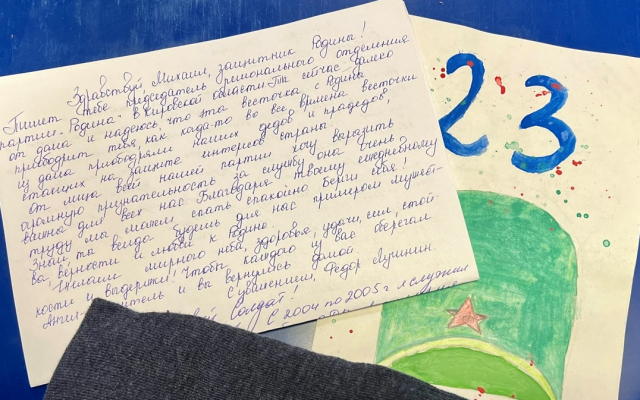 Здравствуй Михаил, защитник Родины!
Пишет тебе председатель регионального отделения
партии "Родина" в Кировской области. Ты сейчас далеко
от дома и надеюсь, что эта весточка с Родины
приободрит тебя, как когда-то во все времена весточки
из дома приободряли наших дедов и прадедов,
ставших на защите интересов страны.
От лица всей нашей партии хочу выразить
огромную признательность за службу она очень
важна для всех нас. Благодаря твоему ежедневному
труду мы можем спать спокойно. Береги себя!
Знай, ты всегда будешь для нас примером мужест-
ва, верности и любви к Родине.
Желаем мирного неба, здоровья, удачи, сил, стой
кости и выдержки! Чтобы каждого из вас оберегал
Ангел- и вы вернулись домой.
С уважением, Федор Лугинин.
Солдат!
С 2004 по 2005 г я служил
23